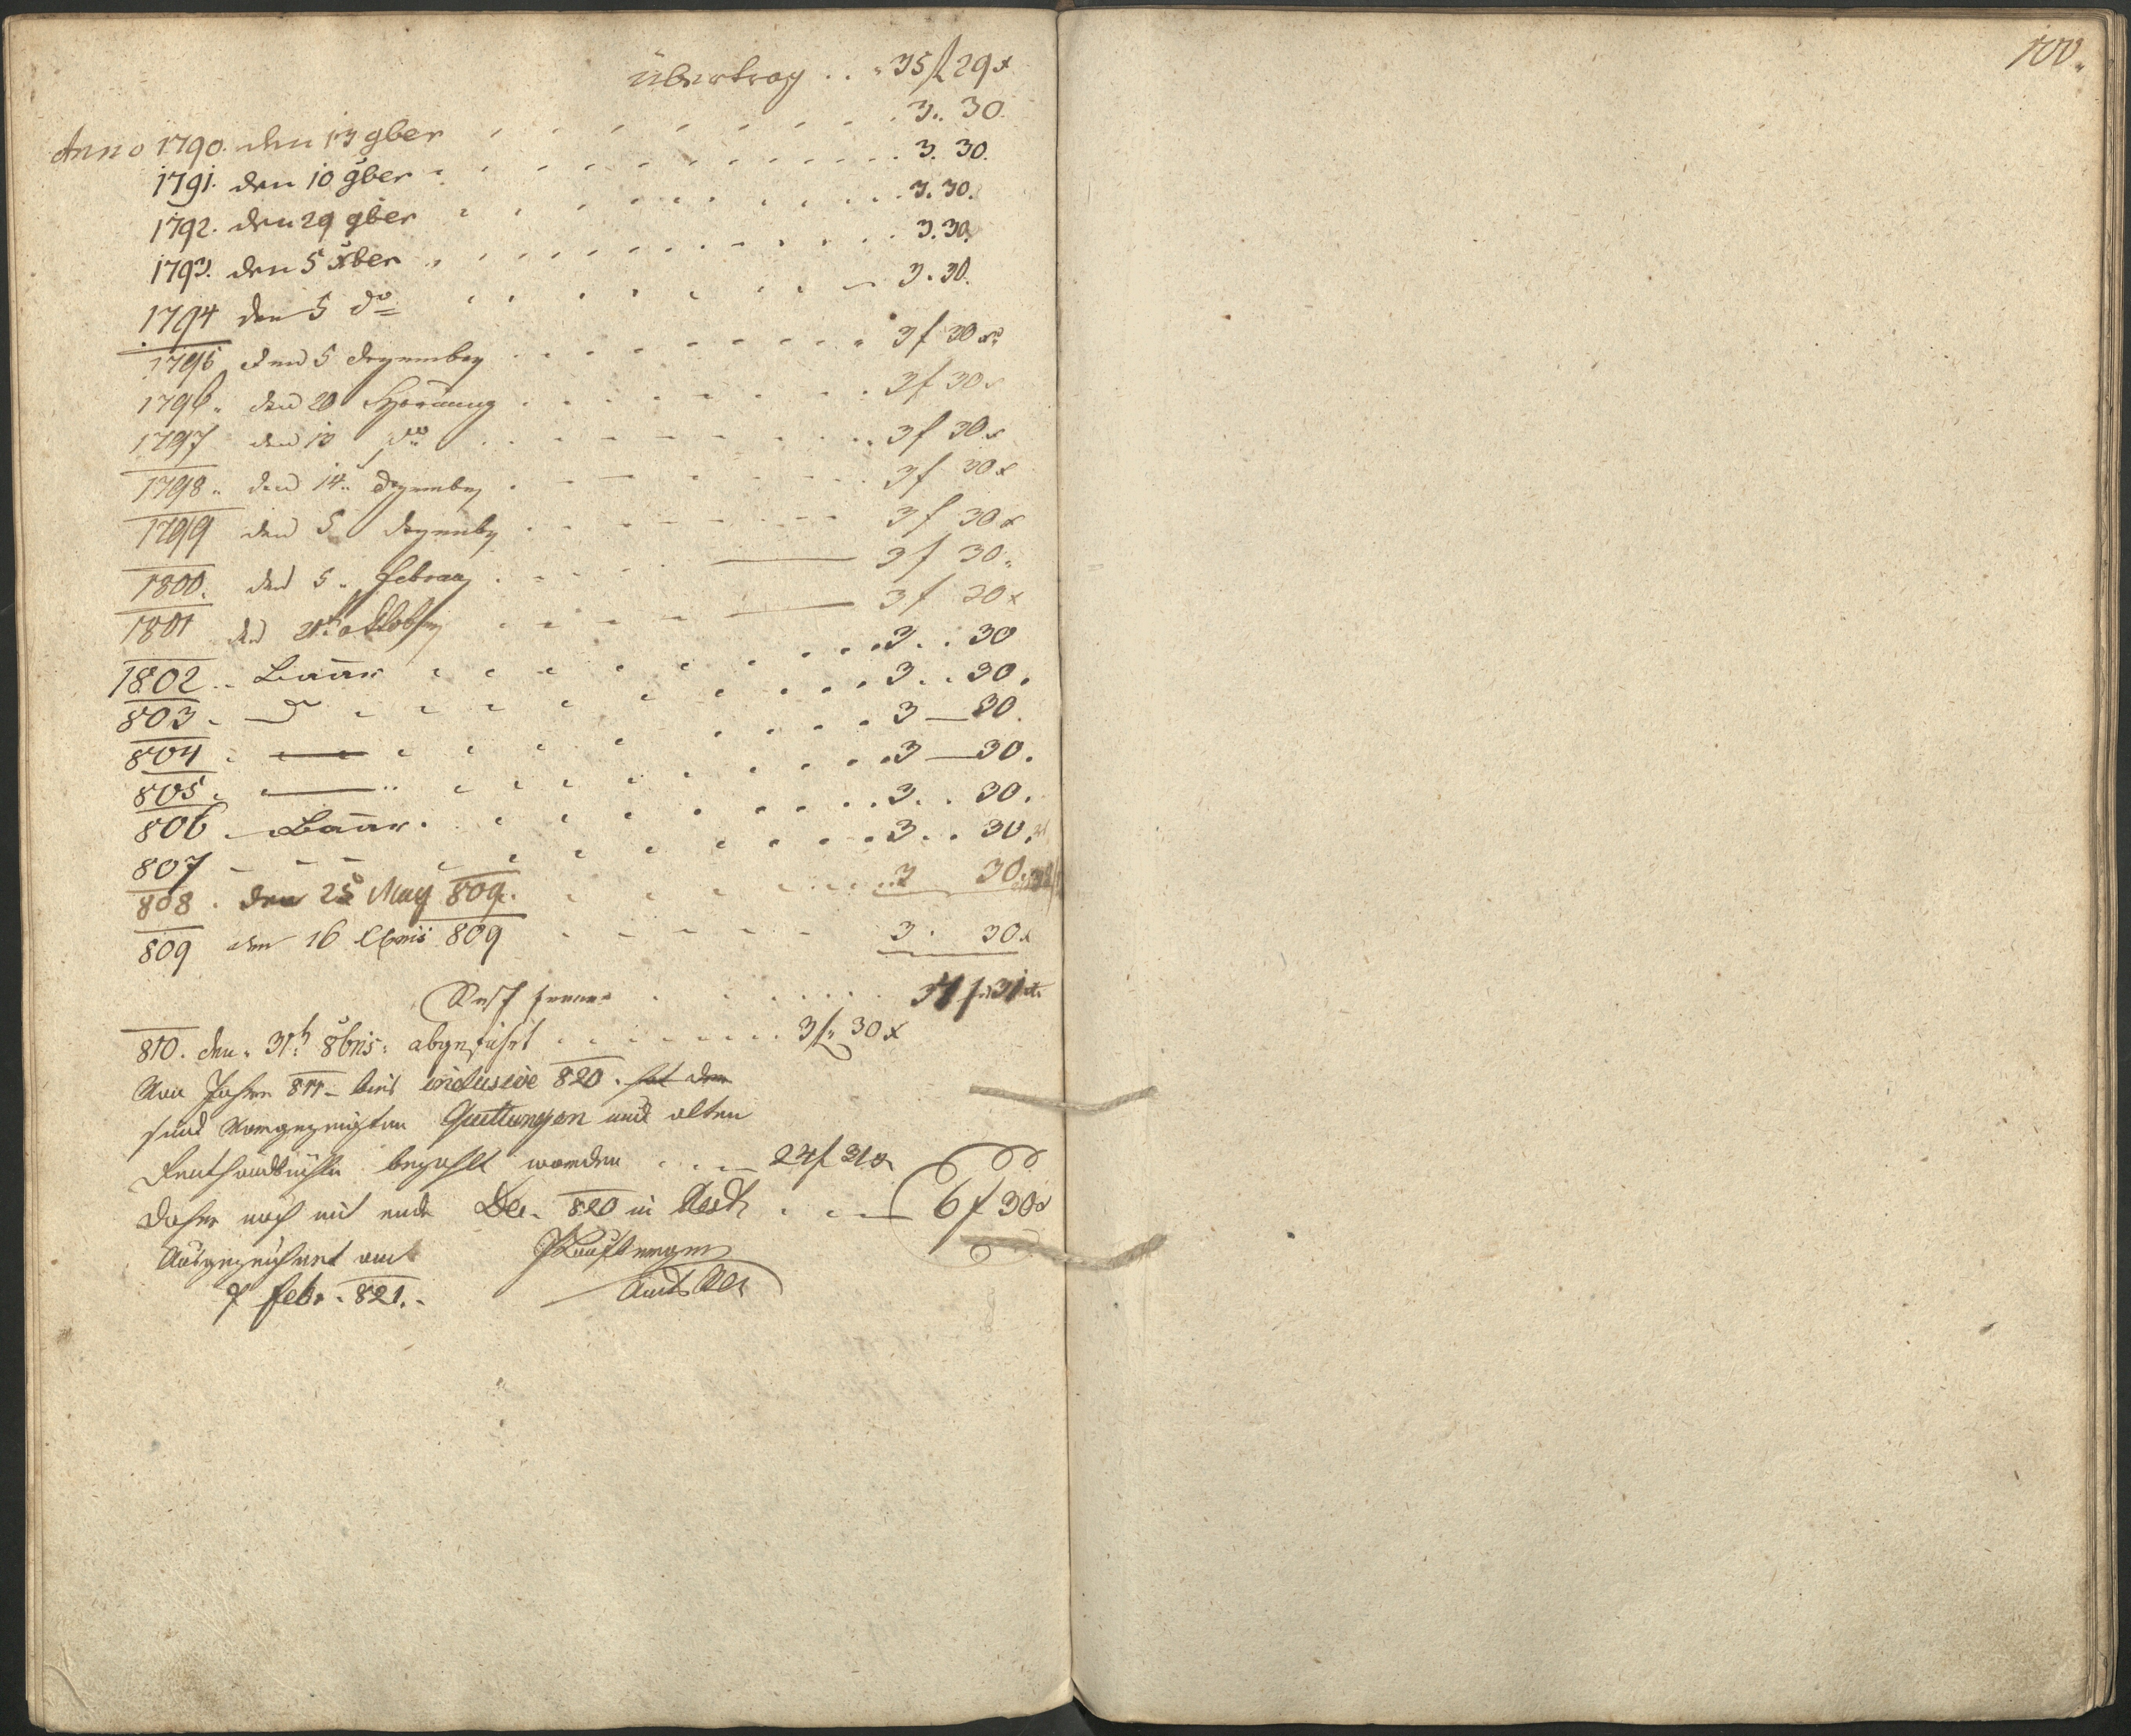 übertrag . . 35 f 29 x
Anno 1790. den 13 9ber . . . 3. 30.
1791. den 10 9ber . . . 3. 30.
1792. den 29 9ber . . . 3. 30.
1793. den 5 xber . . . 3. 30.
1794 den 5 do . . . 3. 30.
1795 den 5 Dezember . . . 3 f 30 x
1796. den 20 Hornung . . . 3 f 30 x
1797 den 10 do . . . 3 f 30 x
1798. den 14. Dezember . . . 3 f 30 x
1799 den 5. Dezember . . . 3 f 30 x
1800. den 5. Februar . . . 3 f 30.
1801 den Oktober . . . 3 f 30 x
1802. Baar . . . 3. . 30
803. — . . . 3. . 30.
804. — . . . 3 — 30.
805. — . . . 3 — 30.
806. Baar . . . 3. . 30.
807 - - - . . . 3. . 30.
808. den 25 May 809. . . . 3 30.
809 den 16 Xbris 809 . . . 3. 30 x
Rest . . . 31 x
810. den 31t 8bris: abgeführt . . . 3 f. 30 x
Von Jahre 811 - bis inclusive 820. hat den
sind vorgezeigten Quittungen und alten
bezahlt worden . . . 24 f 31 x
Daher noch mit ende Dec. 820 in Rest . . . 6 f 30 x
Ausgezeichnet am
7 Febr. 821. Amts
100.